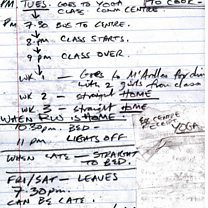 PM TUES. GOES TO YOGA (TO COOK-
CLARE COMM CENTRE.
PM 7.30 BUS TO CENTRE.
8.pm CLASS STARTS.
9.pm CLASS OVER.
WK 1 - Goes to McArdles for
with 2 girls from class
WK 2 - straight HOME
WK 3 - straight HOME
WHEN RUS IS HOME
10.30pm. BED -
11 pm LIGHTS OFF
WHEN LATE - STRAIGHT
TO BED.
FRI/SAT - LEAVES
7.30pm.
CAN BE LATE.
CENTRE
YOGA